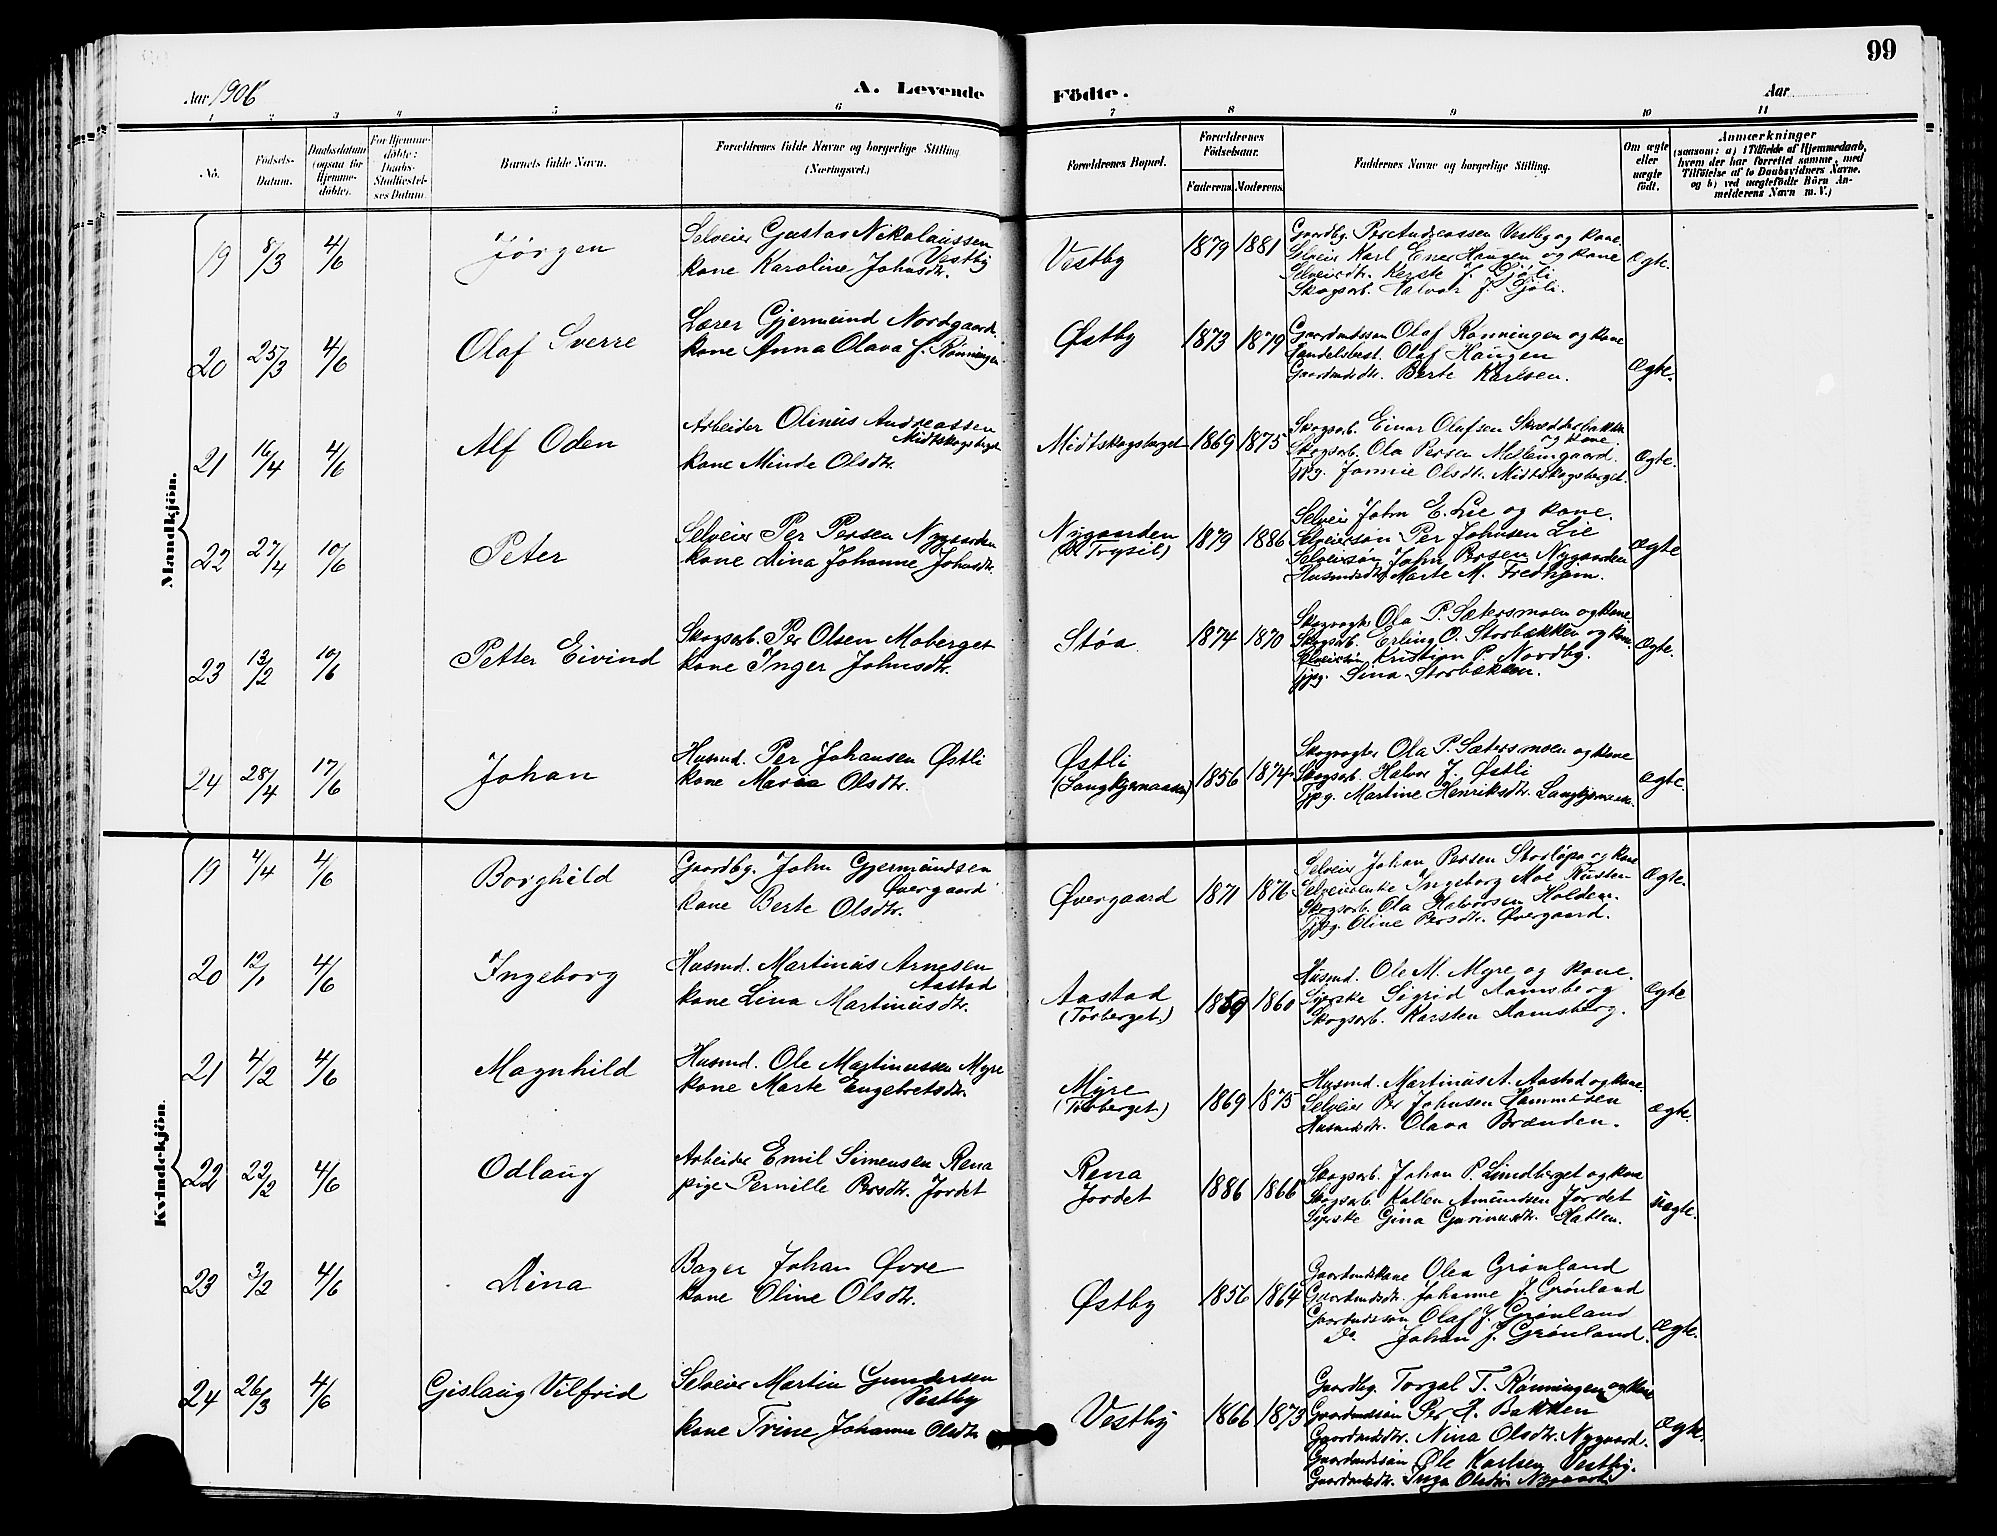 99
Aar 1906
A. Levende Födte.
Aar
1 2 3 4 5 6 7 8 9 10 11
No.
Födsels-Datum.
Daabsdatum (ogsaa for Hjemmedöbte).
For Hjemmedöbte: Daabs-Stadfæstelses Datum.
Barnets fulde Navn.
Forældrenes fulde Navne og borgerlige Stilling (Næringsvei.)
Forældrenes Bopæl.
Forældrenes Födselsaar.
Faderens. Moderens.
Faddernes Navne og borgerlige Stilling.
Om ægte eller uægte födt.
Anmærkninger
(saasom: a) i Tilfælde af Hjemmedaab, hvem der har forrettet samme, med Tilföielse af to Daabsvidners Navne. og b) ved uægtefödte Börn Anmelderens Navn m. V.)
Mandkjön.
19 8/3 4/6 Jørgen
Selveier Gustav Nikolaissen Vestby
kone Karoline Johnsdtr.
Vestby 1879 1881
Gaardbg. Per Andreassen Vestby og kone
Selveier Karl Enerhaugen og kone
Selveierdtr. Kerste J. Sjøli
Skogsarb. Halvor J. Sjøli.
Ægte.
20 25/3 4/6 Olaf Sverre
Lærer Gjermund Nordgaard.
kone Anna Olava f. Rønningen
Østby 1873 1879
Gaardmandssøn Olaf Rønningen og kone
Handelsbest. Olaf Haugen
Gaardmdsdtr. Berte Karlsen.
Ægte.
21 16/4 4/6 Alf Oden
Arbeider Olinus Andreassen Midtskogsberget
kone Minda Olsdtr.
Midtskogsberget 1869 1875
Skogsarb. Einar Olafsen Skrædderbakken og kone.
Skogsarb. Ola Persen Mellemgaard.
Tjpg. Jonnie Olsdtr. Midtskogsberget.
Ægte.
22 27/4 10/6 Peter
Selveier Per Persen Nygaarden
kone Dina Johanne Johnsdtr.
Nygaarden (Ø Trysil) 1879 1886
Selveier John E. Lie og kone.
Selveiersøn Per Johnsen Lie
Selveiersøn John Persen Nygaarden
Husmdsdtr. Marte M. Fredhjem.
Ægte
23 13/2 10/6 Petter Eivind
Skogsarb. Per Olsen Moberget
kone Inger Johnsdtr.
Støa 1874 1870
Skogvogter Ola P. Sætersmoen og kone.
Skogsarb. Erling O. Storbækken og kone.
Selveiersøn Kristian P. Nordby.
Tjpg. Sina Storbækken.
Ægte.
24 28/4 17/6 Johan
Husmd. Per Johansen Østli
kone Maria Olsdtr.
Østli (Langkjernaasen) 1856 1874
Skogvogter Ola P. Sætersmoen og kone
Skogsarb. Halvor J. Østli
Tjpg. Martine Henriksdtr. Langkjernaasen.
Ægte.
Kvindekjön.
19 4/4 4/6 Borghild
Gaardbg. John Gjermundsen Øvergaard
kone Berte Olsdtr.
Øvergaard 1871 1876
Selveier Johan Persen Storløpa og kone
Selveierenke Ingeborg Moe Rusten
Skogsarb. Ola Halvorsen Holden.
Tjpg. Oline Persdtr. Øvergaard.
Ægte.
20 12/1 4/6 Ingeborg
Husmd. Martinus Arnesen Aastad
kone Lina Martinusdtr.
Aastad (Torberget.) 1859 1860
Husmd. Ole M. Myre og kone.
Syerske Sigrid Ramsberg
Skogsarb. Karsten Ramsberg.
Ægte
21 4/2 4/6 Magnhild
Husmd. Ole Martinussen Myre
kone Marte Engebretsdtr.
Myre (Torberget) 1869 1875
Husmd. Martinus A. Aastad og kone.
Selveier Per Johnsen Hammeren
Husmdsdtr. Olava Brænden.
Ægte.
22 22/2 4/6 Odlaug
Arbeider Emil Simensen Rena
pige Pernille Persdtr. Jordet
Rena Jordet 1886 1866
Skogsarb. Johan P. Lundberget og kone
Skogsarb. Kallen Amundsen Jordet
Syerske Gina Gurinusdtr. Hatlen.
uægte.
23 3/2 4/6 Dina
Bager Johan Øvre
kone Oline Olsdtr.
Østby 1856 1864
Gaardmdskone Olea Grønland
Gaardmdsdtr. Johanne J. Grønland
Gaardmdssøn Olaf J. Grønland
Do. Johan J. Grønland.
Ægte.
24 26/3 4/6 Gislaug Vilfrid
Selveier Martin Gundersen Vestby
kone Trine Johanna Olsdtr
Vestby 1866 1873
Gaardbg. Torgal T. Rønningen og kone
Gaardmdssøn Per H. Bakken
Gaardmdsdtr. Nina Olsdtr. Nygaard.
Gaardmdssøn Ole Karlsen Vestby.
Gaardmdsdtr. Inga Olsdtr Nygaard.
Ægte.